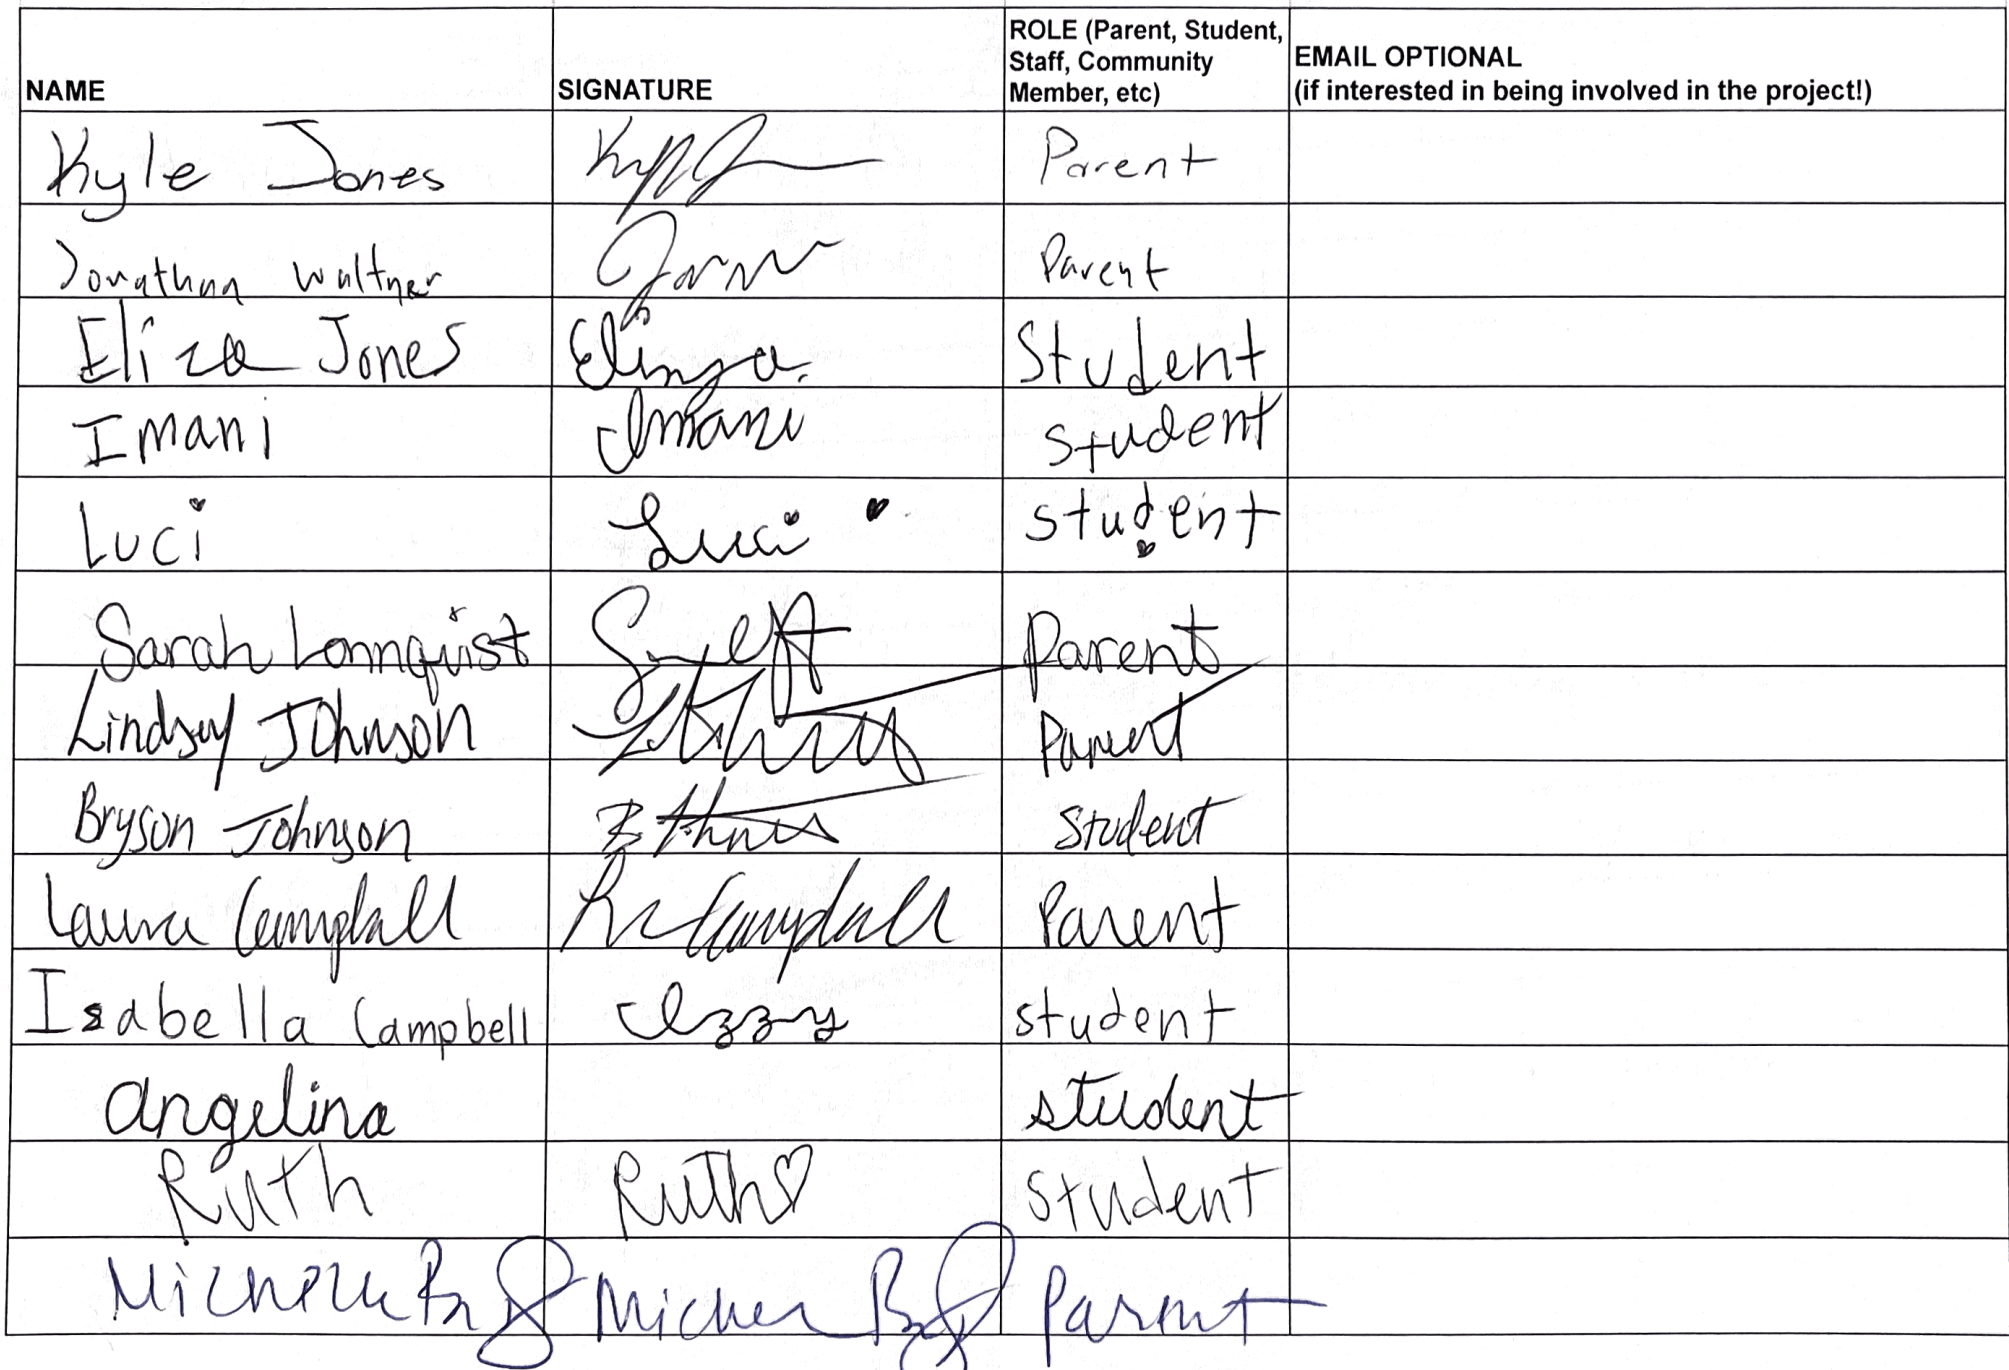 NAME SIGNATURE ROLE (Parent, Student, Staff, Community Member, etc) EMAIL OPTIONAL (if interested in being involved in the project!)
Kyle Jones Parent
Jonathan Waltner Parent
Eliza Jones Eliza Student
Imani Imani student
Luci Luci student
Sarah Lonnquist Parent
Lindsay Johnson Parent
Bryson Johnson Student
Laura Campbell Campbell Parent
Isabella Campbell Izzy student
Angelina student
Ruth Ruth student
Michelle Parent